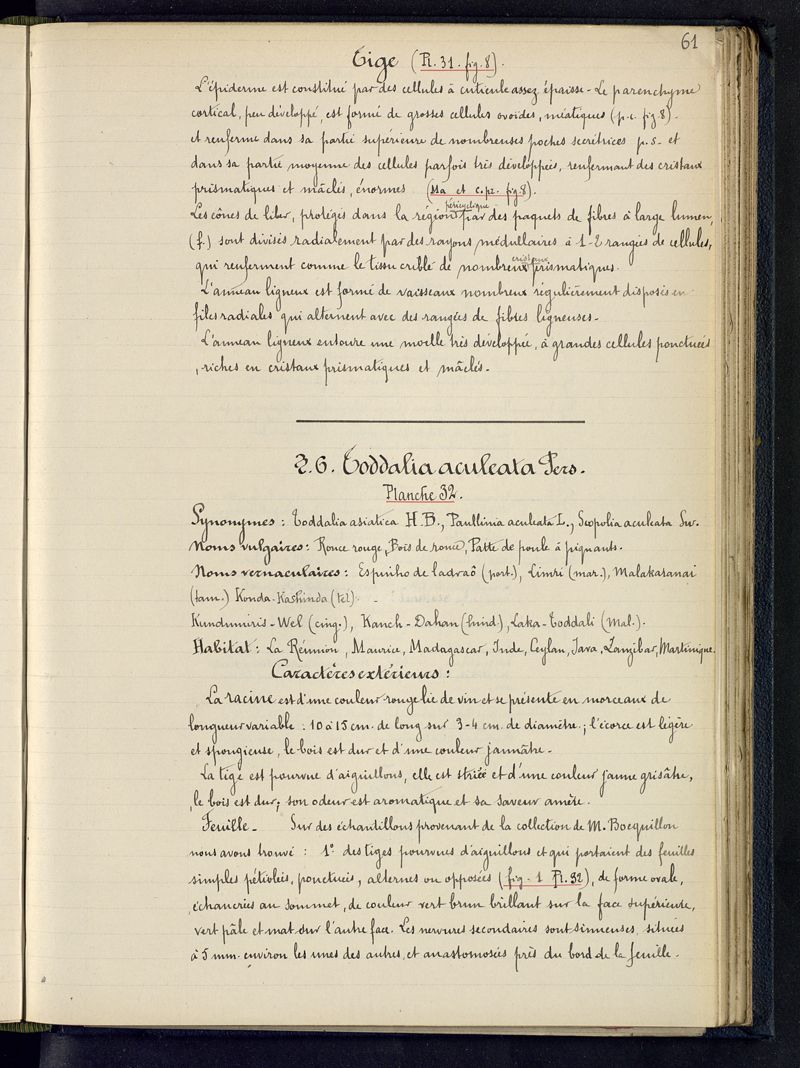 61
Tige (Pl. 31. fig. 8).
L'épiderme est constitué par des cellules à cuticule assez épaisse - Le parenchyme
cortical, peu développé, est formé de grosses cellules ovoïdes, méatiques (p.c. fig 8).
et renferme dans sa partie supérieure de nombreuses poches secrétrices p.s. et
dans sa partie moyenne des cellules parfois très développées, renfermant des cristaux
prismatiques et mâclés, énormes (ma et c.pr. fig. 8).
Les cônes de liber, protégés dans la région péricyclique par des paquets de fibres à large lumen,
(f.) sont divisés radialement par des rayons médullaires à 1-2 rangées de cellules,
qui renferment comme le tissu criblé de nombreux cristaux prismatiques.
L'anneau ligneux est formé de vaisseaux nombreux régulièrement disposés en
files radiales qui alternent avec des rangées de fibres ligneuses -
L'anneau ligneux entoure une moelle très développée, à grandes cellules ponctuées
, riches en cristaux prismatiques et mâclés -
2.6. Toddalia aculeata Pers.
Planche 32.
Synonymes : Toddalia asiatica H.B., Paullinia aculeata L., Scopolia aculeata Sm.
Noms vulgaires : Ronce rouge, Bois de ronce, Patte de poule à piquants.
Noms vernaculaires : Espinho de ladraô (port.), Limri (mar.), Malakaranai
(tam.) Konda-Kashinda (tel)
Kundumiris-Wel (cing.), Kanch-Dahan (hind), Kaka-Toddali (Mal.).
Habitat : La Réunion, Maurice, Madagascar, Inde, Ceylan, Java, Zanzibar, Martinique.
Caractères extérieurs :
La racine est d'une couleur rouge lie de vin et se présente en morceaux de
longueur variable : 10 à 15 cm. de long sur 3-4 cm. de diamètre ; l'écorce est légère
et spongieuse, le bois est dur et d'une couleur jaunâtre -
La tige est pourvue d'aiguillons, elle est striée et d'une couleur jaune grisâtre,
le bois est dur ; son odeur est aromatique et sa saveur amère.
Feuille - Sur des échantillons provenant de la collection de M. Bocquillon
nous avons trouvé : 1º des tiges pourvues d'aiguillons et qui portaient des feuilles
simples pétiolées, ponctuées, alternes ou opposées (fig. 1 Pl. 32), de forme ovale,
échancrées au sommet, de couleur vert brun brillant sur la face supérieure,
vert pâle et mat sur l'autre face. Les nervures secondaires sont sinueuses, situées
à 5 mm. environ les unes des autres, et anastomosées près du bord de la feuille -